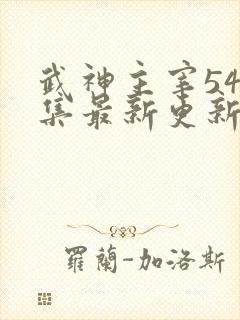 武神主宰54
集最新更新
羅蘭-加洛斯